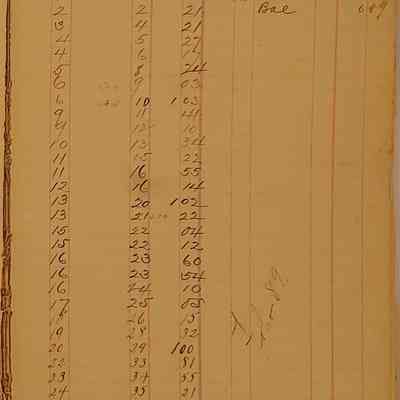 2 2 21 Bal 689
3 4 21
4 5 27
4 6
5 8 74
6 9 03
6 10 1 03
9 11 41
9 12 10
10 13 34
11 15 22
11 16 55
12 16 14
13 20 1 02
13 21 22
15 22 04
15 22 12
16 23 60
16 23 54
16 24 10
17 25 05
26 15
19 28 32
20 29 1 00
22 33 81
23 34 55
24 35 21